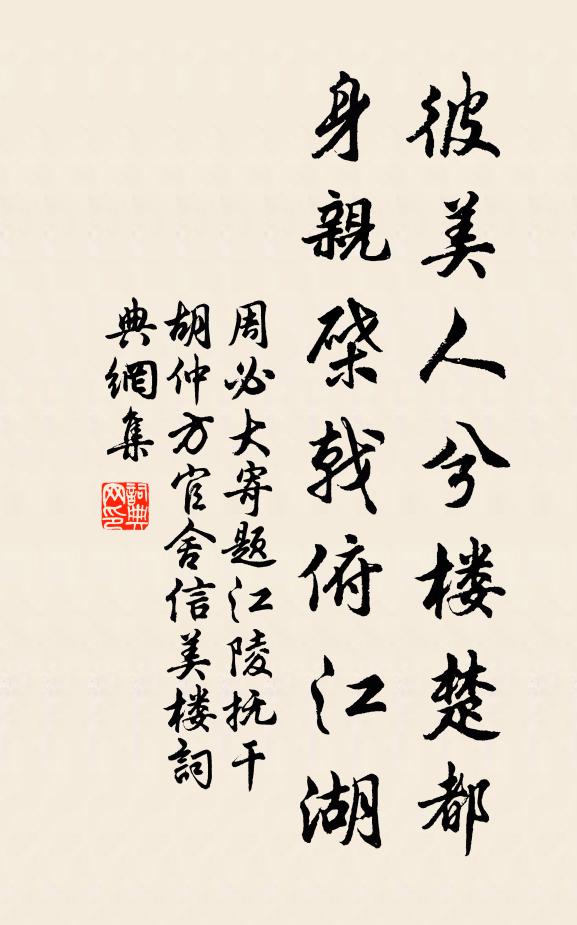 彼美人兮楼楚都
身親棨戟俯江湖
周必大寄题江陵抚干
胡仲方官舍信美楼詞
典網集
詞典網印